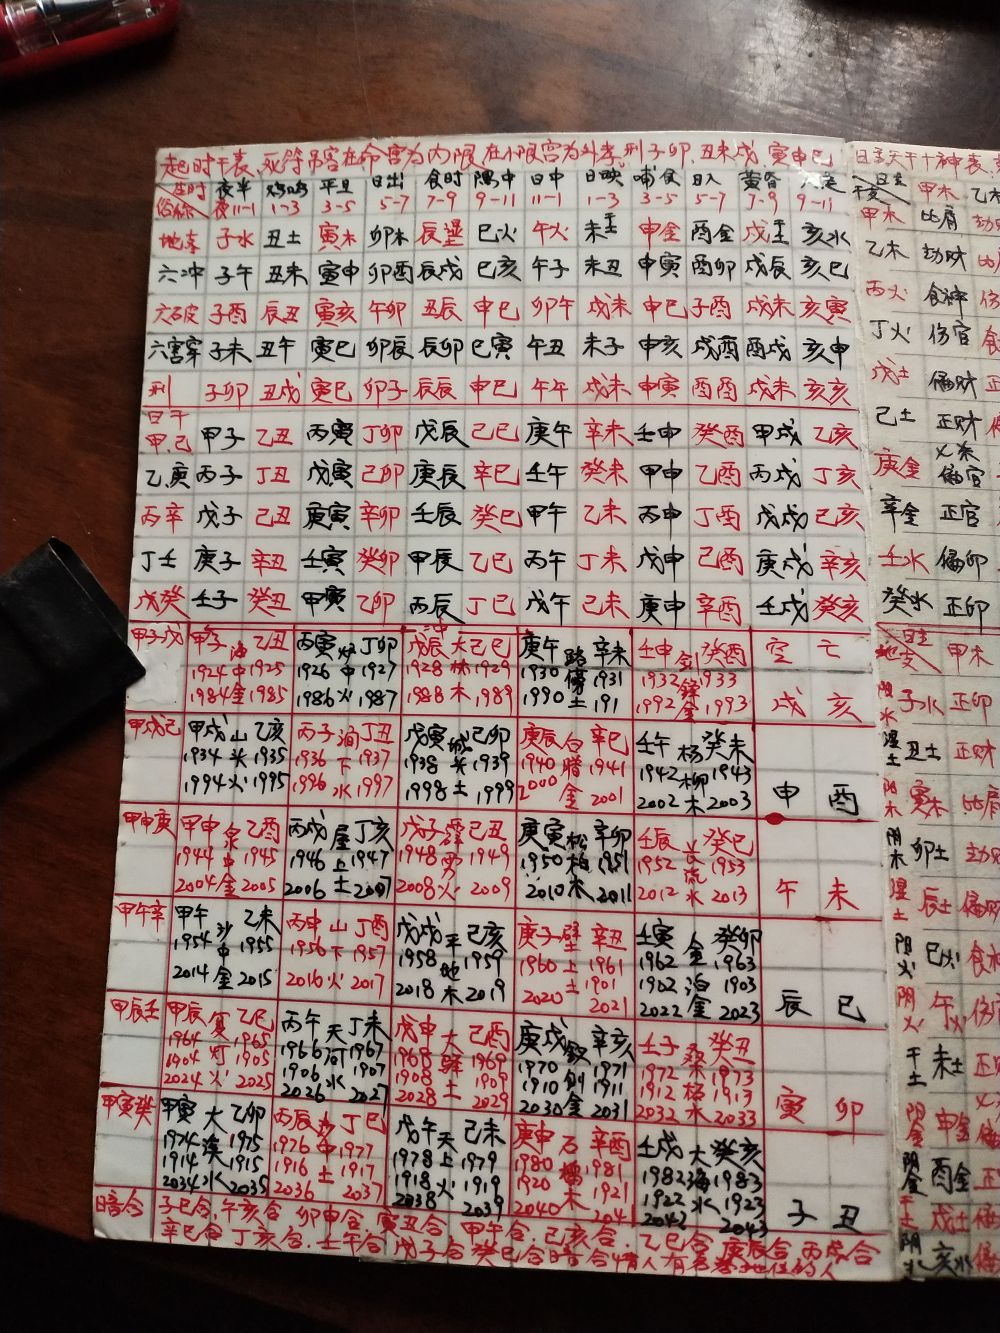 起时干表,死符吊客在命宫为内限,在小限宫为外孝,刑子卯,丑未戌,寅申巳
生时 夜半 鸡鸣 平旦 日出 食时 隅中 日中 日昳 哺食 日入 黄昏
俗称 夜11-1 1-3 3-5 5-7 7-9 9-11 11-1 1-3 3-5 5-7 7-9 9-11
地支 子水 丑土 寅木 卯木 辰湿土 巳火 午火 未干土 申金 酉金 戌干土 亥水
六冲 子午 丑未 寅申 卯酉 辰戌 巳亥 午子 未丑 申寅 酉卯 戌辰 亥巳
六破 子酉 辰丑 寅亥 午卯 丑辰 申巳 卯午 戌未 申巳 子酉 戌未 亥寅
六害穿 子未 丑午 寅巳 卯辰 辰卯 巳寅 午丑 未子 申亥 戌酉 酉戌 亥申
刑 子卯 丑戌 寅巳 卯子 辰辰 申巳 午午 戌未 申寅 酉酉 戌未 亥亥
日干
甲.己 甲子 乙丑 丙寅 丁卯 戊辰 己巳 庚午 辛未 壬申 癸酉 甲戌 乙亥
乙.庚 丙子 丁丑 戊寅 己卯 庚辰 辛巳 壬午 癸未 甲申 乙酉 丙戌 丁亥
丙辛 戊子 己丑 庚寅 辛卯 壬辰 癸巳 甲午 乙未 丙申 丁酉 戊戌 己亥
丁壬 庚子 辛丑 壬寅 癸卯 甲辰 乙巳 丙午 丁未 戊申 己酉 庚戌 辛亥
戊癸 壬子 癸丑 甲寅 乙卯 丙辰 丁巳 戊午 己未 庚申 辛酉 壬戌 癸亥
甲子戊 甲子 海 乙丑 丙寅 炉 丁卯 戊辰 大 己巳 庚午 路 辛未 壬申 剑 癸酉 空 亡
1924 中 1925 1926 中 1927 1928 林 1929 1930 傍 1931 1932 锋 1933
1984 金 1985 1986 火 1987 1988 木 1989 1990 土 191 1992 金 1993 戌 亥
甲戌己 甲戌 山 乙亥 丙子 涧 丁丑 戊寅 城 己卯 庚辰 白 辛巳 壬午 杨 癸未
1934 头 1935 1936 下 1937 1938 头 1939 1940 腊 1941 1942 柳 1943
1994 火 1995 1996 水 1997 1998 土 1999 2000 金 2001 2002 木 2003 申 酉
甲申庚 甲申 泉 乙酉 丙戌 屋 丁亥 戊子 霹 己丑 庚寅 松 辛卯 壬辰 长 癸巳
1944 中 1945 1946 上 1947 1948 雳 1949 1950 柏 1951 1952 流 1953
2004 金 2005 2006 土 2007 2008 火 2009 2010 木 2011 2012 水 2013 午 未
甲午辛 甲午 沙 乙未 丙申 山 丁酉 戊戌 平 己亥 庚子 壁 辛丑 壬寅 金 癸卯
1954 中 1955 1956 下 1957 1958 地 1959 1960 上 1961 1962 1963
1901 1902 泊 1903
2014 金 2015 2016 火 2017 2018 木 2019 2020 土 2021 2022 金 2023 辰 巳
甲辰壬 甲辰 复 乙巳 丙午 天 丁未 戊申 大 己酉 庚戌 钗 辛亥 壬子 桑 癸丑
1964 1965 1966 河 1967 1968 驿 1969 1970 1971 1972 1973
1904 灯 1905 1906 1907 1908 1909 1910 钏 1911 1912 1913
2024 火 2025 2026 水 2027 2028 土 2029 2030 金 2031 2032 木 2033 寅 卯
甲寅癸 甲寅 大 乙卯 丙辰 沙 丁巳 戊午 天 己未 庚申 石 辛酉 壬戌 大 癸亥
1974 溪 1975 1976 中 1977 1978 上 1979 1980 榴 1981 1982 海 1983
1914 1915 1916 土 1917 1918 火 1919 1920 1921 1922 水 1923
2034 水 2035 2036 2037 2038 2039 2040 木 2041 2042 2043 子 丑
暗合 子巳合.午亥合.卯申合.寅丑合.甲午合.己亥合.乙巳合.庚辰合.丙戌合
辛巳合.丁亥合.壬午合.戊子合.癸巳合暗合情人有名地位的人
日主 甲木 乙木
干支
甲木 比肩 劫财
乙木 劫财 比
丙火 食神 伤
丁火 伤官 食
戊土 偏财 正
己土 正财 偏
庚金 七杀偏官
辛金 正官
壬水 偏印
癸水 正印
日主 甲木
地支
阳水 子水 正印
湿土 丑土 正财
阳木 寅木 比肩
阴木 卯土 劫财
湿土 辰土 偏财
阴火 巳火 食神
阴火 午火 伤
干土 未土 正
阳金 申金
阴金 酉金 正
干土 戌土 偏
阴水 亥水 偏